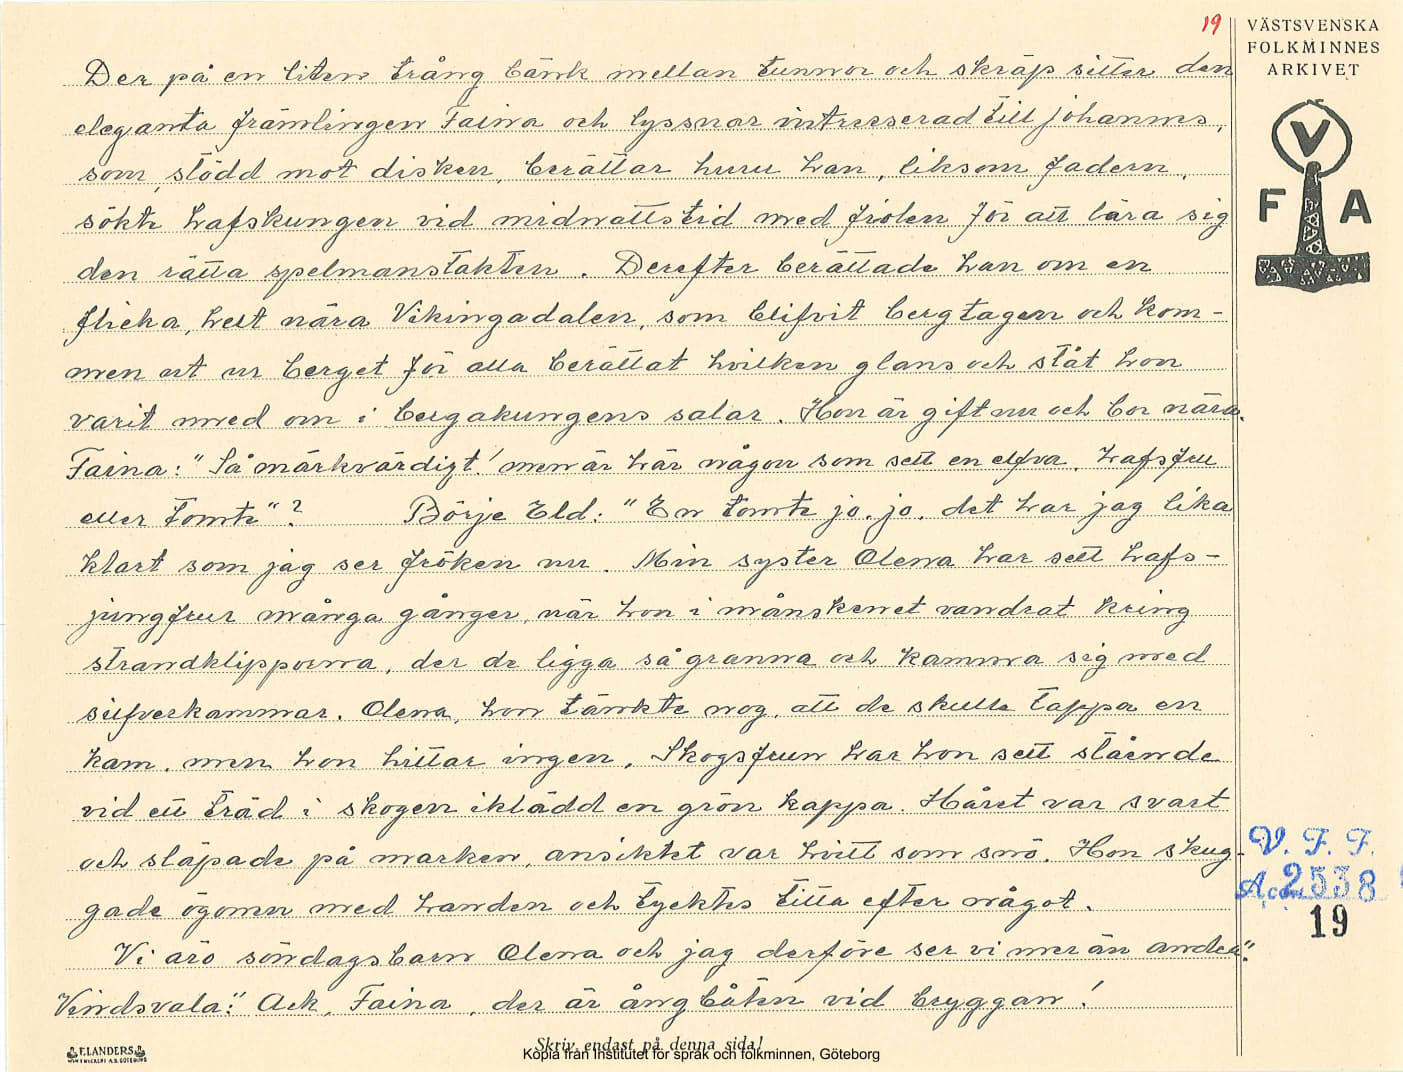 19
VÄSTSVENSKA
FOLKMINNES
ARKIVET
V
F A
Der på en liten trång bänk mellan tunnor och skräp sitter den
eleganta främlingen Faina och lyssnar intresserad till johannes,
som, stödd mot disken, berättar huru han, liksom fadern,
sökte hafskungen vid midnattstid med fiolen för att lära sig
den rätta spelmanstakten. Derefter berättade han om en
flicka, helt nära Vikingadalen, som blifvit bergtagen och kom-
men ut ur berget för alla berättat hvilken glans och ståt hon
varit med om i bergakungens salar. Hon är gift nu och bor nära.
Faina: "Så märkvärdigt! men är här någon som sett en elfva, hafsfru
eller tomte"? Börje Eld: "En tomte jo, jo, det har jag lika
klart som jag ser fröken nu. Min syster Olena har sett hafs-
jungfrur många gånger, när hon i månskenet vandrat kring
strandklipporna, der de ligga så granna och kamma sig med
silfverkammar. Olena, hon tänkte nog, att de skulle tappa en
kam, men hon hittar ingen. Skogsfrun har hon sett stående
vid ett träd i skogen iklädd en grön kappa. Håret var svart
och släpade på marken, ansiktet var hvitt som snö. Hon skug-
gade ögonen med handen och tycktes titta efter något.
Vi äro söndagsbarn Olena och jag derföre ser vi mer än andra".
Vindsvala: "Ack, Faina, der är ångbåten vid bryggan!
V. F. F.
Acc. 2538
19
ELANDERS
Skriv endast på denna sida!
Kopia från Institutet för språk och folkminnen, Göteborg